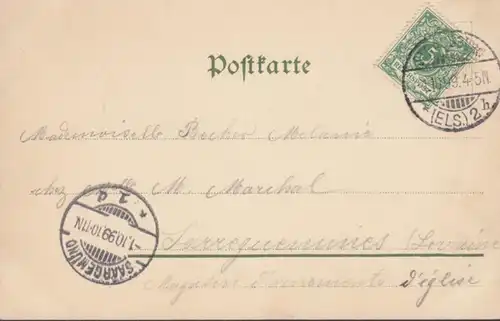 Postkarte
5
(ELS.) 2h
Mademoiselle Becker Melanie
chez M. Marchal
Sarreguemines (Lorraine
Magasin d'ornements d'église
SAARGEMÜND
1.10.99.10-11N.
* 1 d